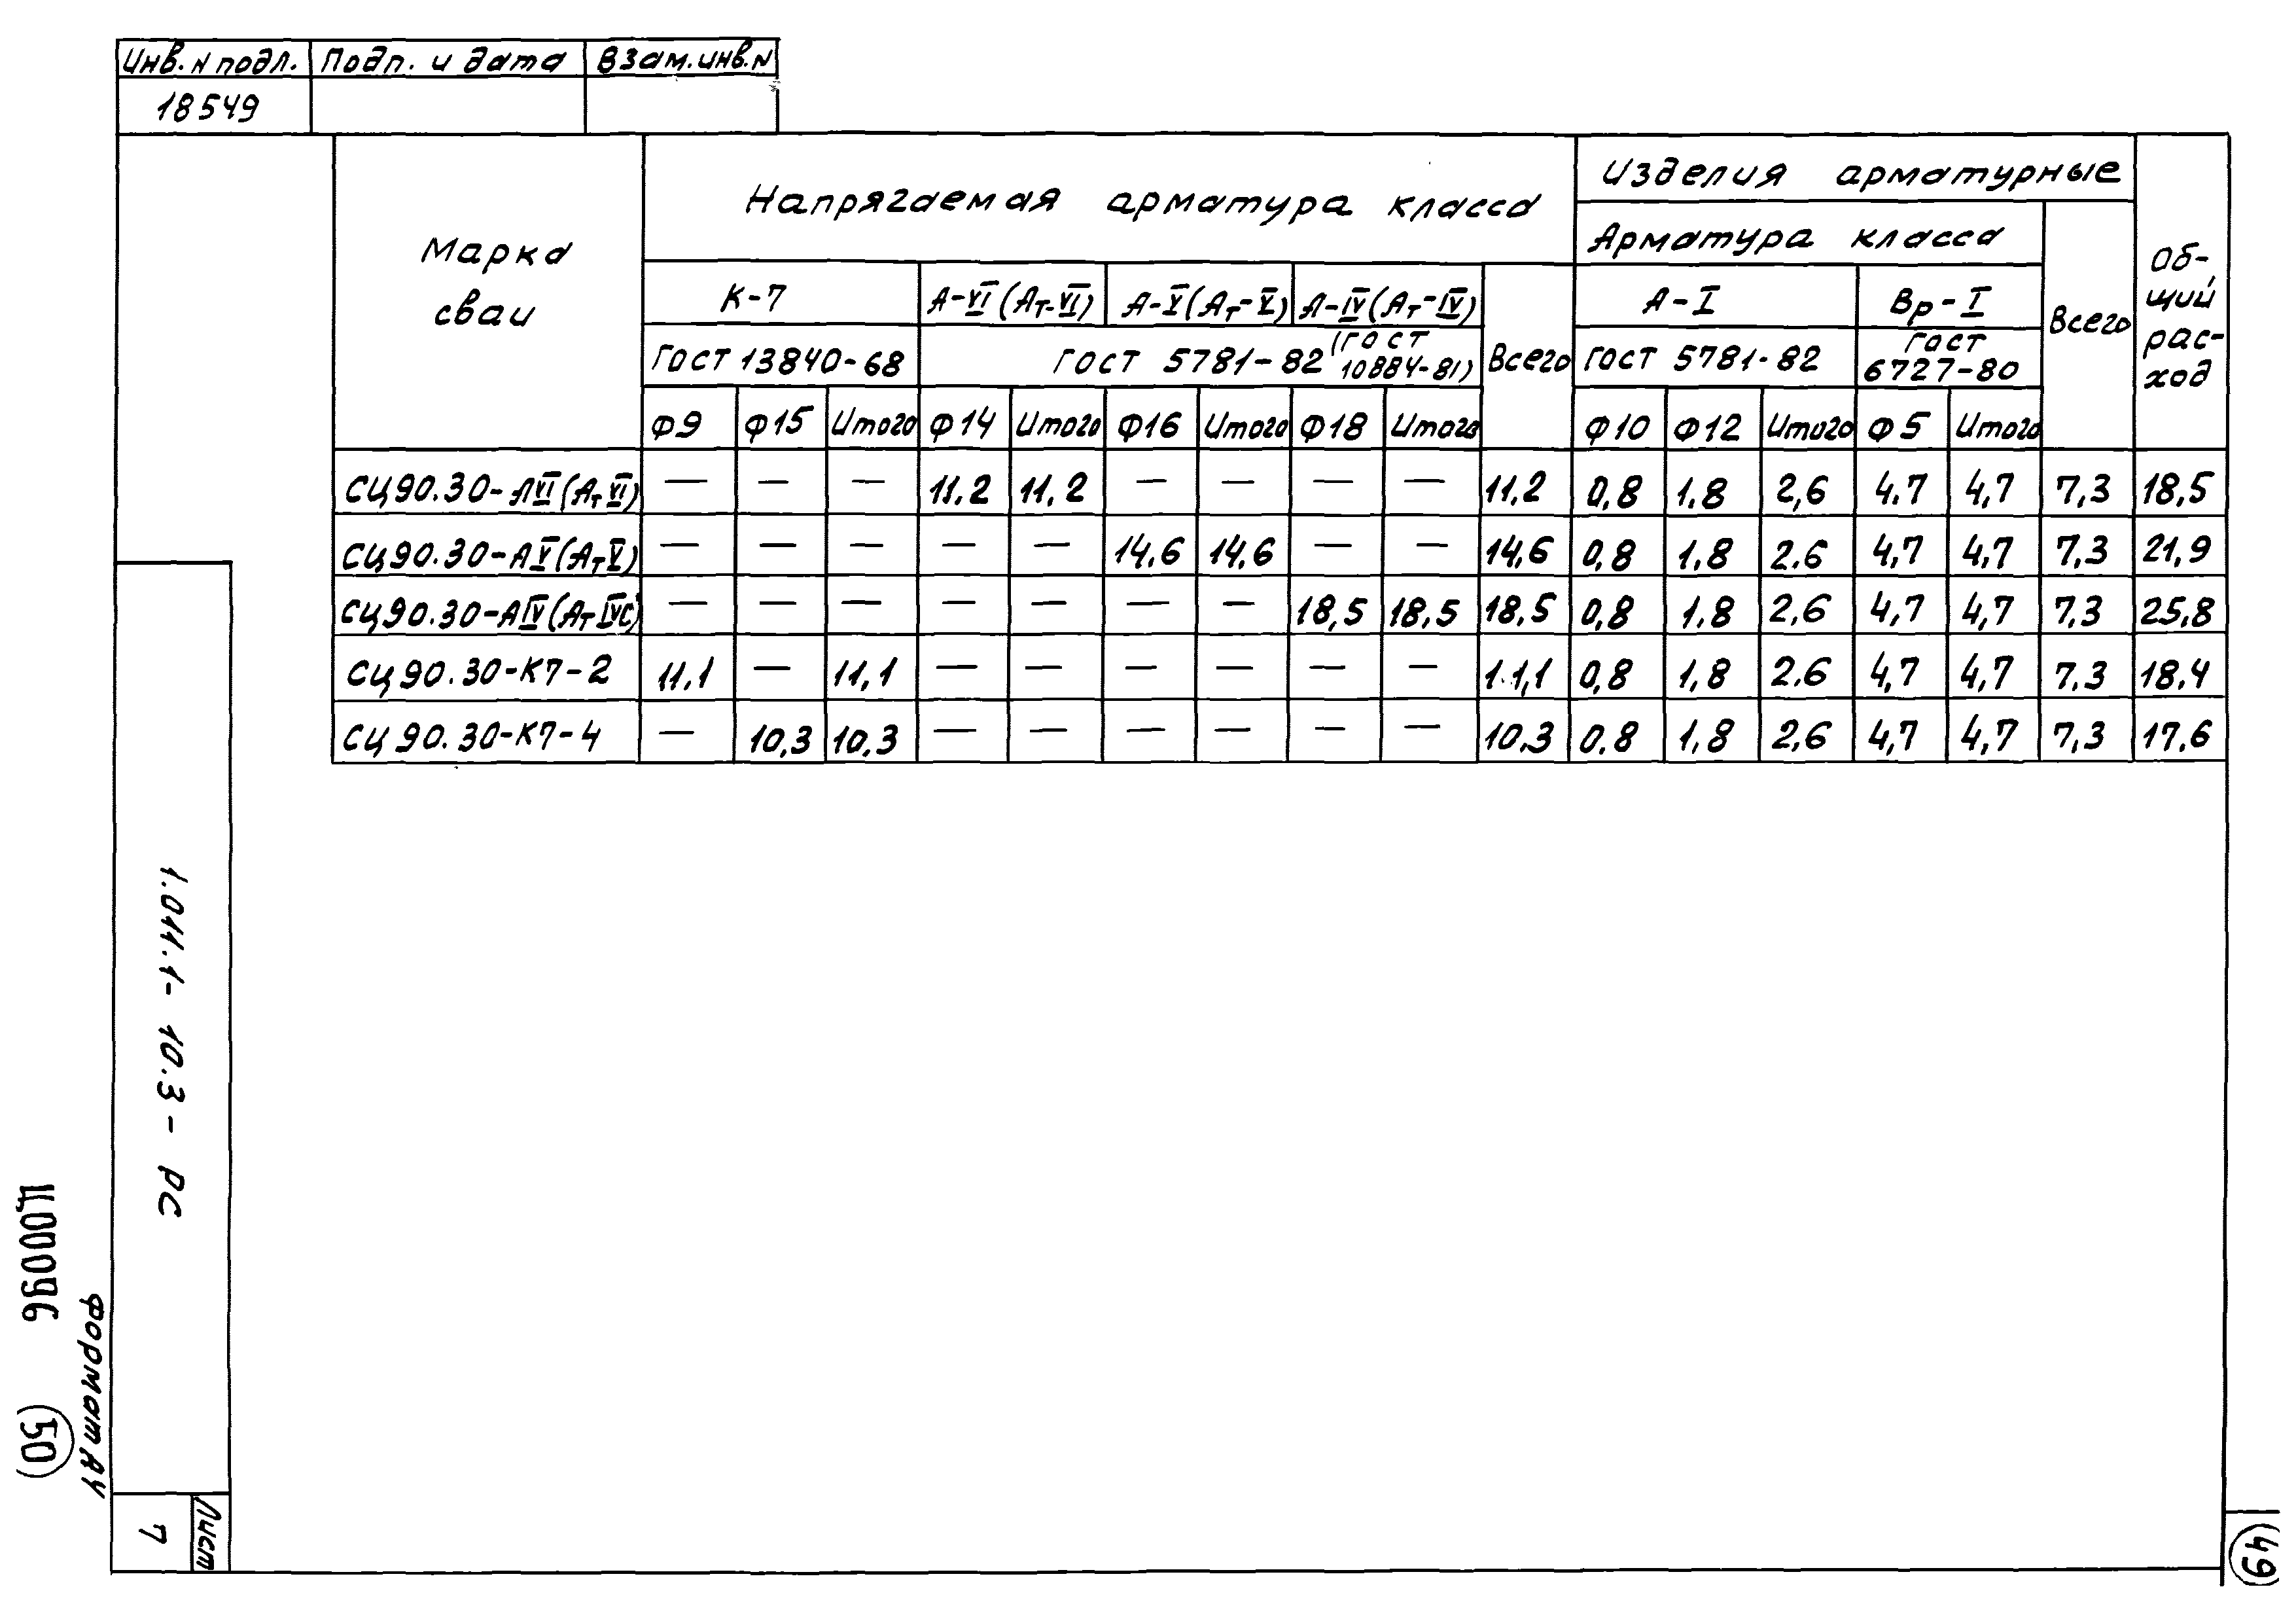 Инв. N подл. Подп. и дата Взам. инв. N
18549
Марка сваи
Напрягаемая арматура класса
Изделия арматурные
Общий расход
Арматура класса
Всего
К-7 А-VI (Ат-VI) А-V (Ат-V) А-IV (Ат-IV) Всего А-I Вр-I
ГОСТ 13840-68 ГОСТ 5781-82 (ГОСТ 10884-81) ГОСТ 5781-82 ГОСТ 6727-80
Ф9 Ф15 Итого Ф14 Итого Ф16 Итого Ф18 Итого Ф10 Ф12 Итого Ф5 Итого
СЦ90.30-АVI (АтVI) — — — 11,2 11,2 — — — — 11,2 0,8 1,8 2,6 4,7 4,7 7,3 18,5
СЦ90.30-АV (АтV) — — — — — 14,6 14,6 — — 14,6 0,8 1,8 2,6 4,7 4,7 7,3 21,9
СЦ90.30-АIV (АтIVС) — — — — — — — 18,5 18,5 18,5 0,8 1,8 2,6 4,7 4,7 7,3 25,8
СЦ90.30-К7-2 11,1 — 11,1 — — — — — — 11,1 0,8 1,8 2,6 4,7 4,7 7,3 18,4
СЦ90.30-К7-4 — 10,3 10,3 — — — — — — 10,3 0,8 1,8 2,6 4,7 4,7 7,3 17,6
1.011.1-10.3-РС
Лист
7
Формат А4
Ц00096 50
49